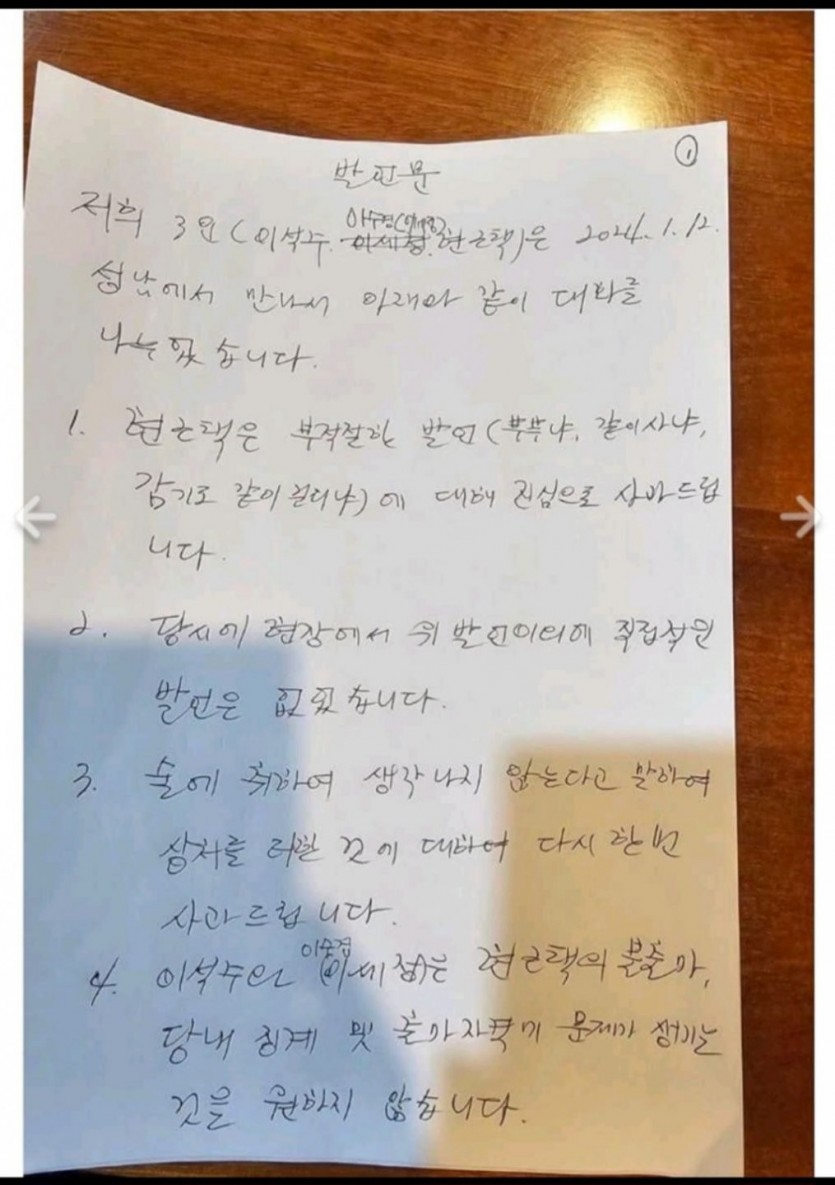 ①
발언문
이순경(이세정)
저희 3인(이석주. 이세정. 현근택)은 2024. 1. 12.
성남에서 만나서 아래와 같이 대화를
나누었습니다.
1. 현근택은 부적절한 발언(부부냐, 같이사냐,
감기도 같이 걸리냐)에 대해 진심으로 사과드립
니다.
2. 당시에 현장에서 위 발언이외에 직접적인
발언은 없었습니다.
3. 술에 취하여 생각나지 않는다고 말하여
상처를 더한 것에 대하여 다시 한번
사과드립니다.
이순경
4. 이석주와 (이세정)는 현근택의 불출마,
당내 징계 및 출마자격기 문제가 생기는
것을 원하지 않습니다.